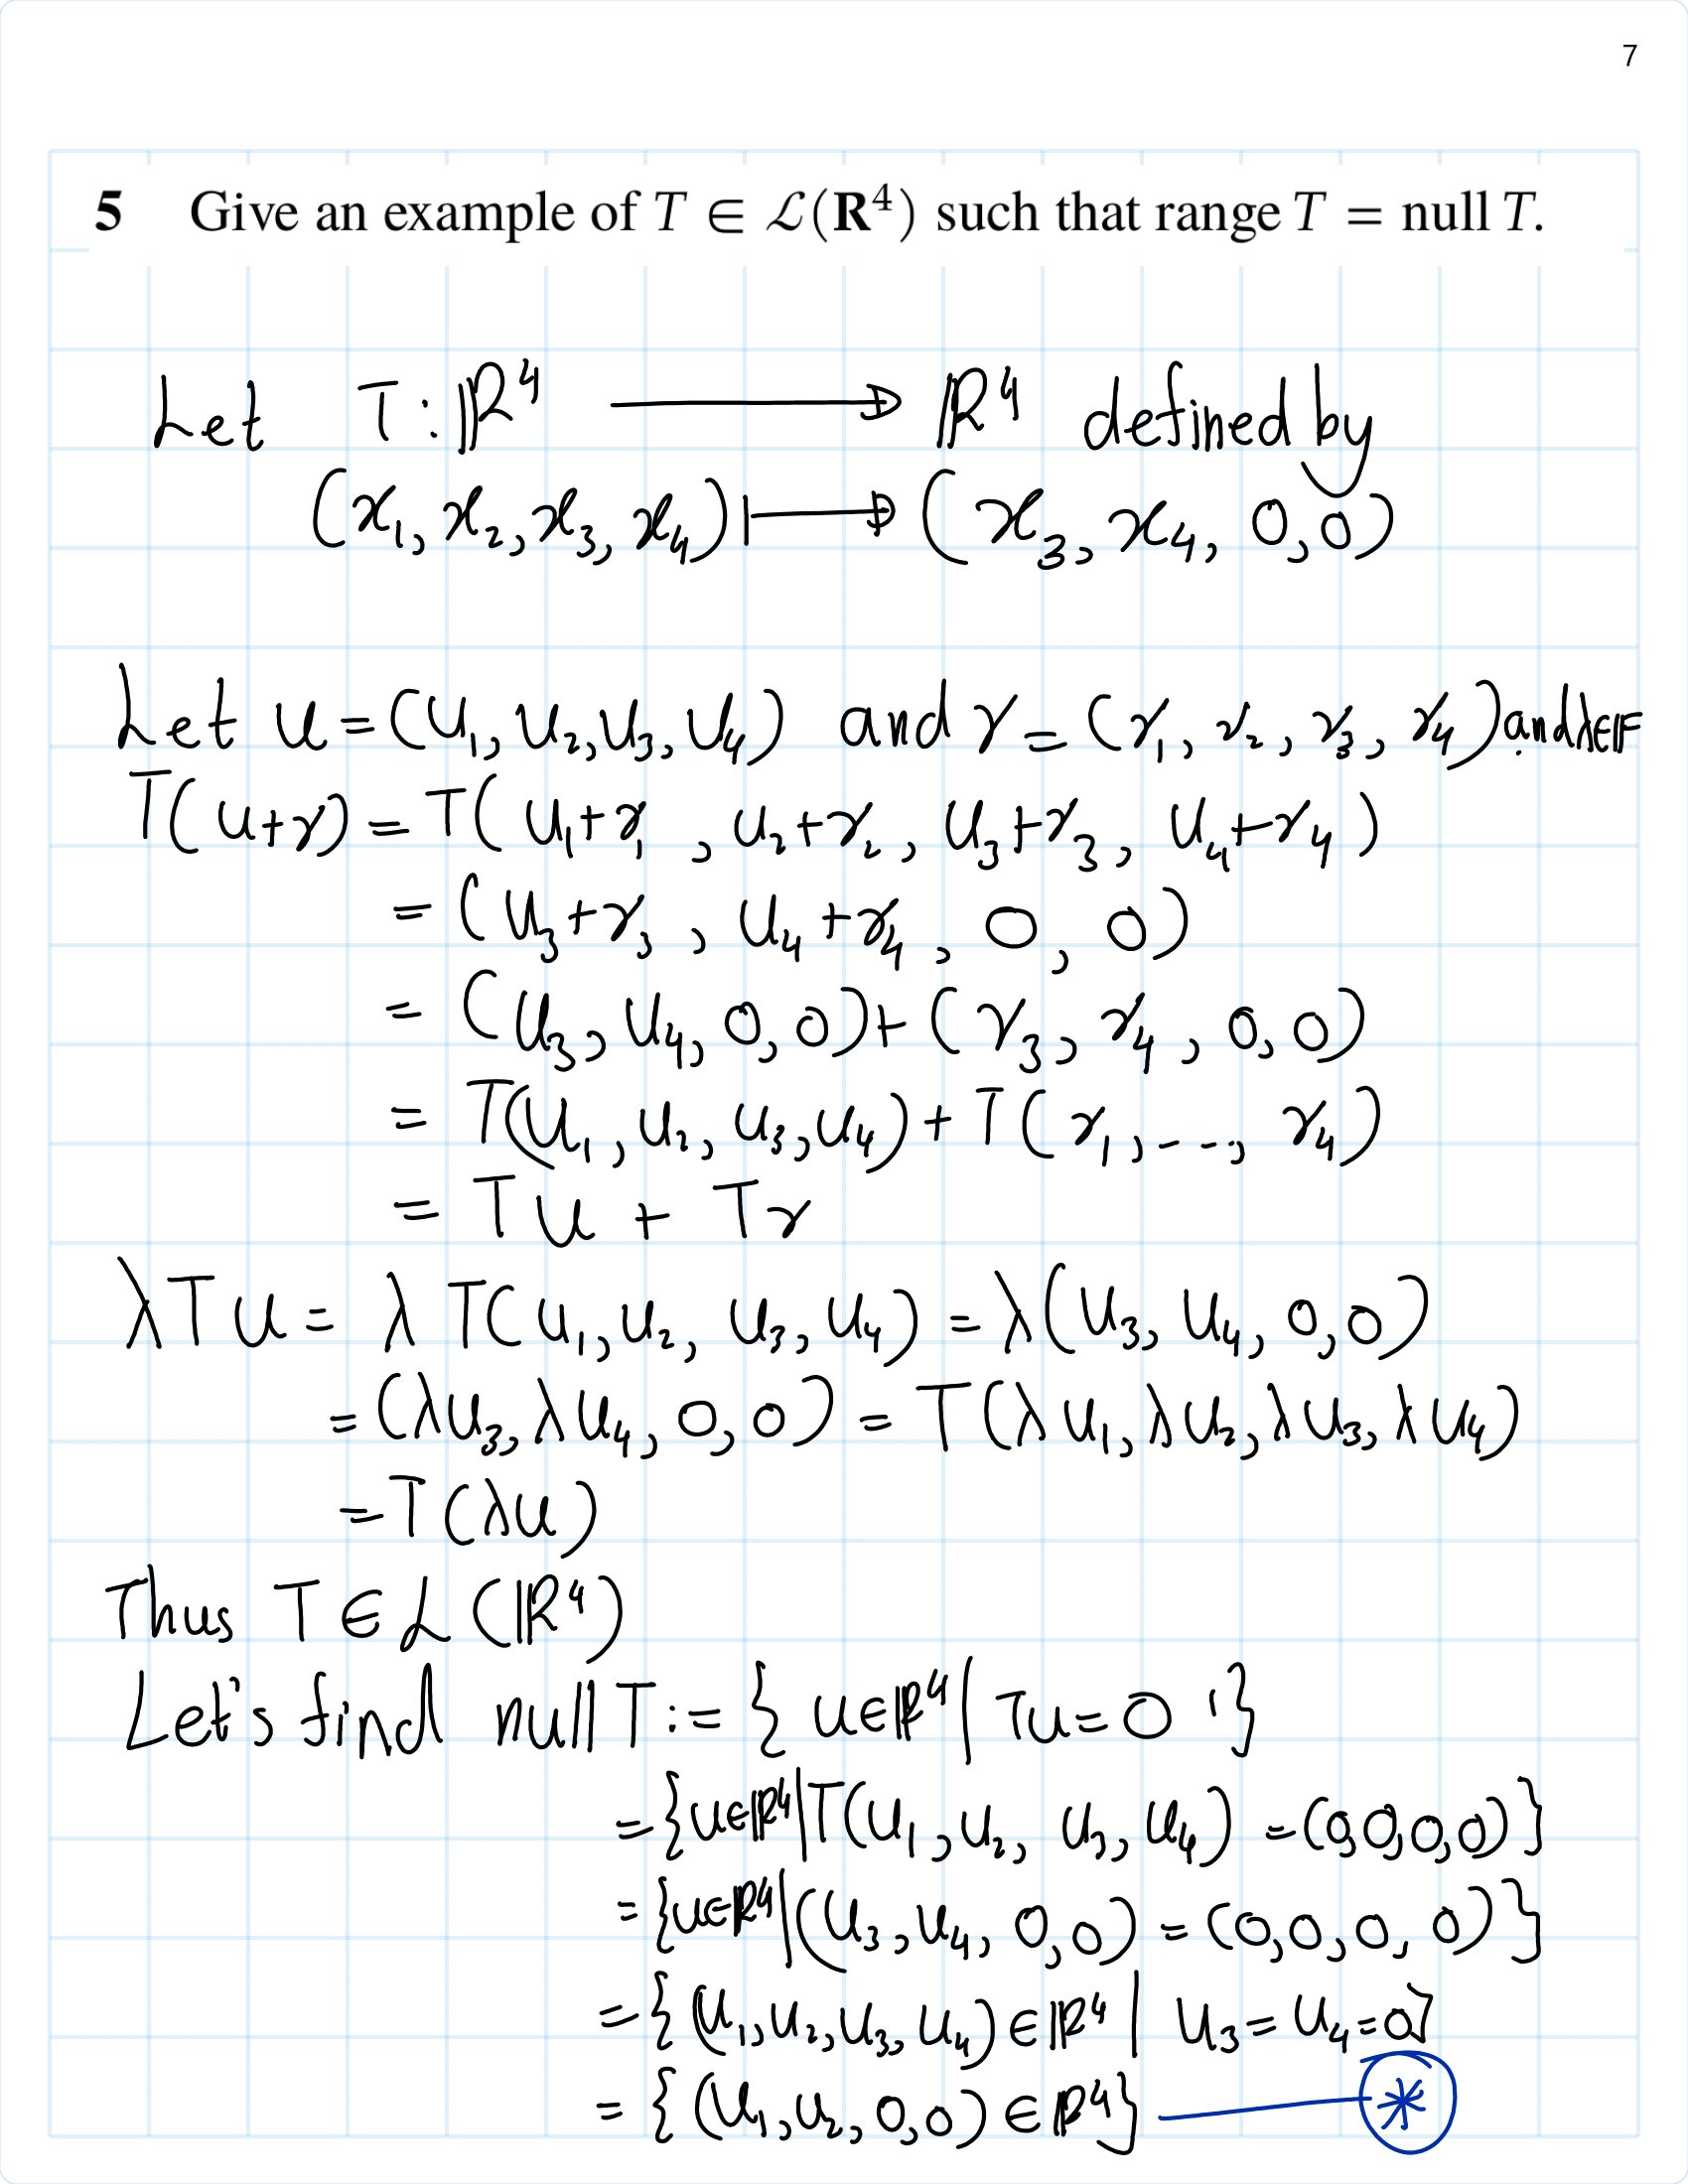 7
5 Give an example of T ∈ ℒ(R⁴) such that range T = null T.
Let T : ℝ⁴ ⟶ ℝ⁴ defined by
(x₁, x₂, x₃, x₄) ⟼ (x₃, x₄, 0, 0)
Let u = (u₁, u₂, u₃, u₄) and v = (v₁, v₂, v₃, v₄) and λ∈𝔽
T(u+v) = T(u₁+v₁, u₂+v₂, u₃+v₃, u₄+v₄)
= (u₃+v₃, u₄+v₄, 0, 0)
= (u₃, u₄, 0, 0) + (v₃, v₄, 0, 0)
= T(u₁, u₂, u₃, u₄) + T(v₁, ..., v₄)
= Tu + Tv
λTu = λT(u₁, u₂, u₃, u₄) = λ(u₃, u₄, 0, 0)
= (λu₃, λu₄, 0, 0) = T(λu₁, λu₂, λu₃, λu₄)
= T(λu)
Thus T ∈ ℒ(ℝ⁴)
Let's find null T := { u∈ℝ⁴ | Tu = 0 }
= {u∈ℝ⁴ | T(u₁, u₂, u₃, u₄) = (0,0,0,0)}
= {u∈ℝ⁴ | (u₃, u₄, 0, 0) = (0, 0, 0, 0)}
= {(u₁, u₂, u₃, u₄) ∈ ℝ⁴ | u₃ = u₄ = 0}
= {(u₁, u₂, 0, 0) ∈ ℝ⁴} — ⊛